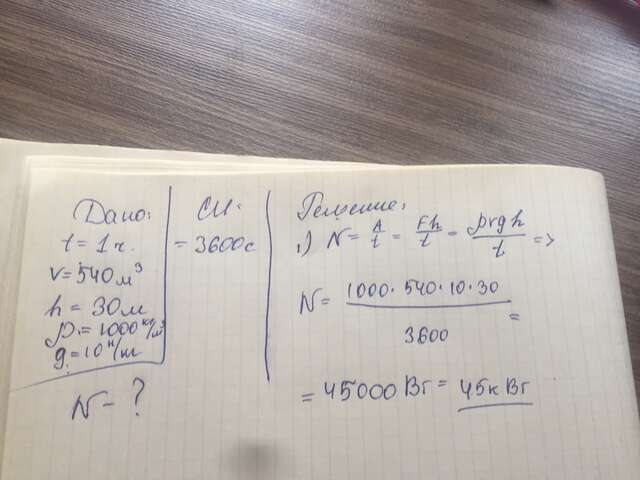 Дано:
t = 1 ч.
v = 540 м³
h = 30 м
ρ = 1000 кг/м³
g = 10 н/кг
N - ?
СИ:
= 3600с
Решение:
1) N = A/t = Fh/t = ρvgh/t =>
N = 1000·540·10·30/3600 =
= 45000 Вт = 45 кВт